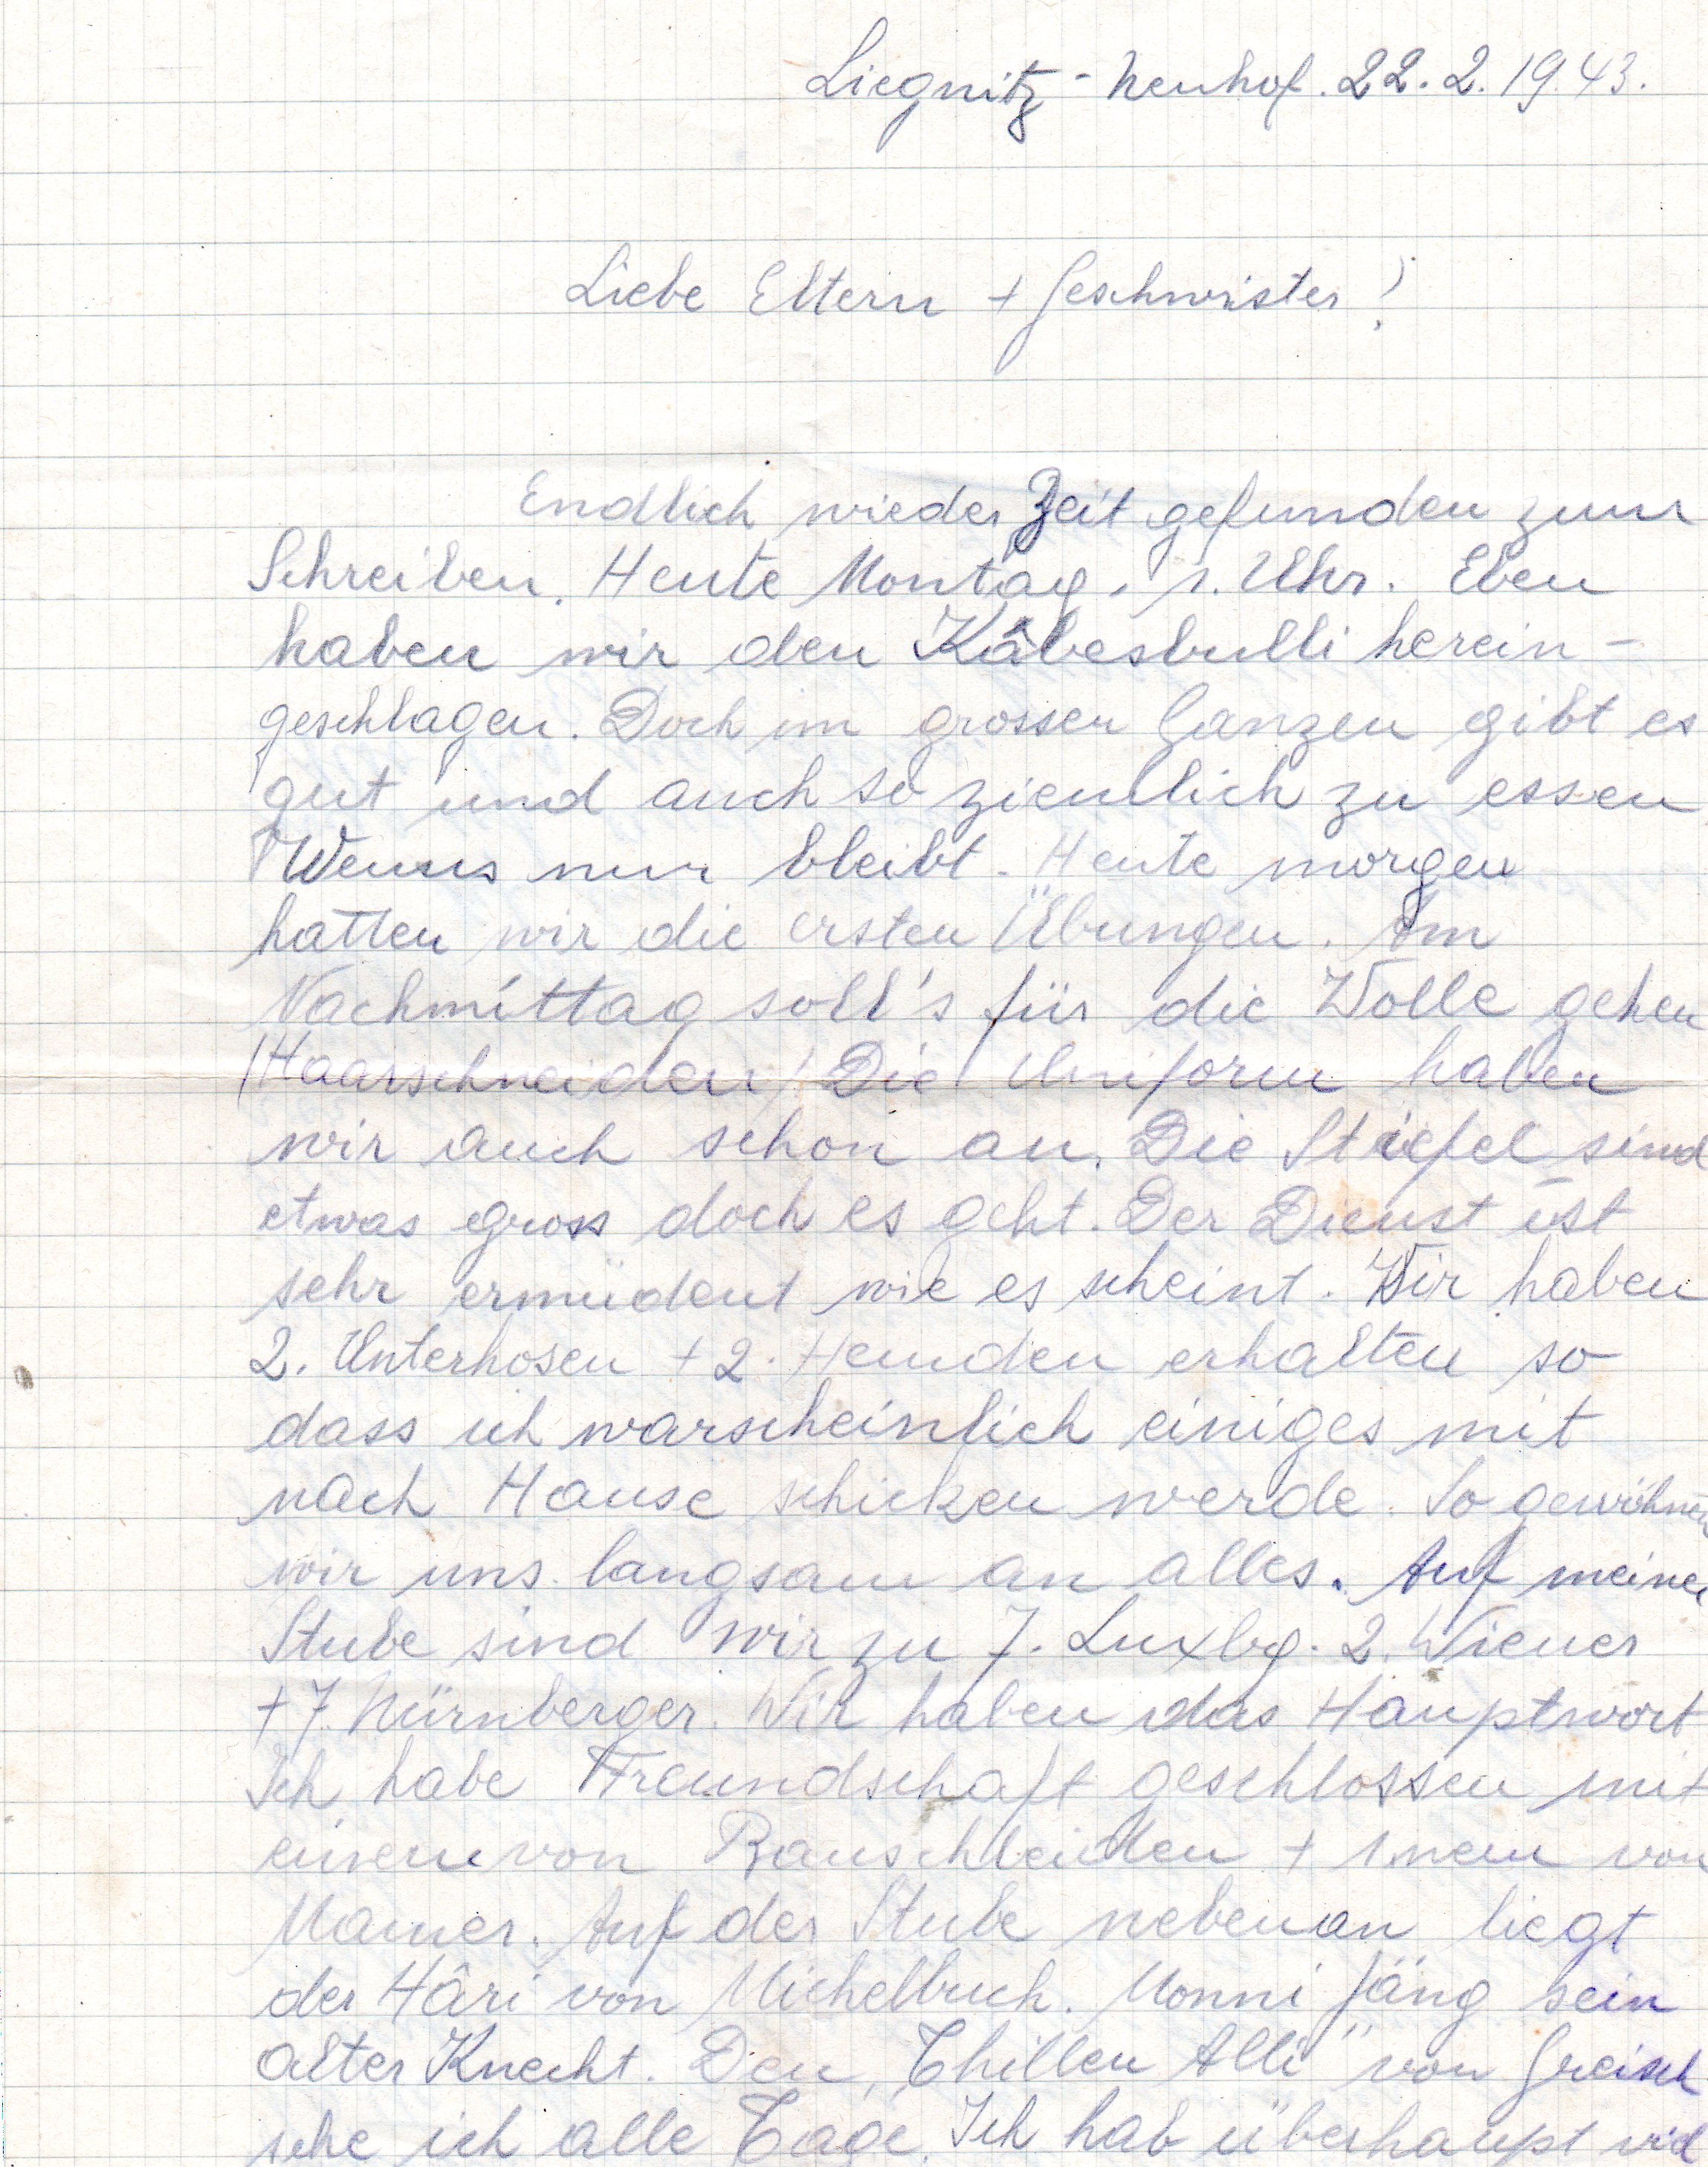 Liegnitz-Neuhof. 22.2.1943.
Liebe Eltern + Geschwister!
Endlich wieder Zeit gefunden zum
Schreiben. Heute Montag, 1. Uhr. Eben
haben wir den Kâbesbulli herein-
geschlagen. Doch im grossen Ganzen gibt es
gut und auch so ziemlich zu essen
Wenns nur bleibt. Heute morgen
hatten wir die ersten Übungen. Am
Nachmittag soll's für die Wolle gehen
/Haarschneiden/ Die Uniform haben
wir auch schon an. Die Stiefel sind
etwas gross doch es geht. Der Dienst ist
sehr ermüdent wie es scheint. Wir haben
2. Unterhosen + 2. Hemden erhalten so
dass ich warscheinlich einiges mit
nach Hause schicken werde. So gewöhnen
wir uns langsam an alles. Auf meiner
Stube sind wir zu 7. Luxbg. 2. Wiener
+ 7 Nürnberger. Wir haben das Hauptwort
Ich habe Freundschaft geschlossen mit
einem von Rauschleiden + 1.nem von
Mamer. Auf der Stube nebenan liegt
der Hâri von Michelbuch. Monni Jäng sein
alter Knecht. Den „Thillen Alli" von Greisch
sehe ich alle Tage. Ich hab überhaupt viel